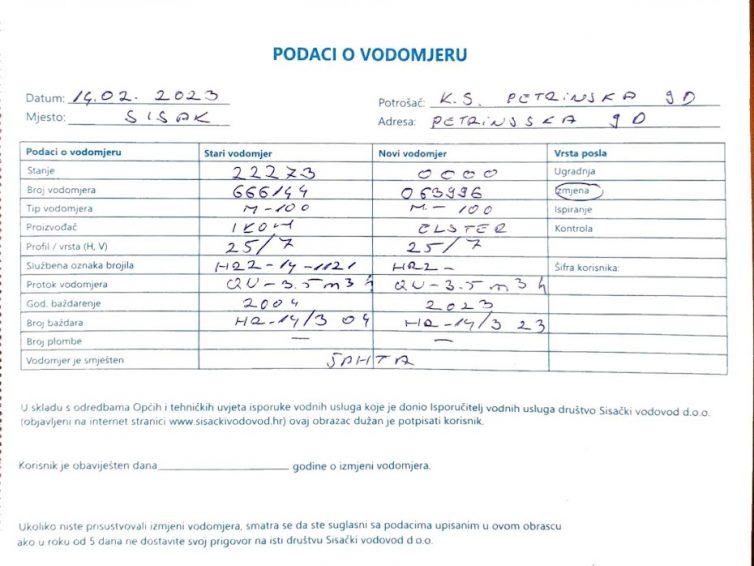 PODACI O VODOMJERU
Datum: 14.02. 2023 Potrošač: K.S. PETRINJSKA 9D
Mjesto: SISAK Adresa: PETRINJSKA 9D
Podaci o vodomjeru Stari vodomjer Novi vodomjer Vrsta posla
Stanje 22273 0000 Ugradnja
Broj vodomjera 666144 063996 Izmjena
Tip vodomjera M-100 M-100 Ispiranje
Proizvođač IKOM ELSTER Kontrola
Profil / vrsta (H, V) 25/7 25/7
Službena oznaka brojila HR2-14-1121 HR2- Šifra korisnika:
Protok vodomjera QN-3.5m3h QN-3.5m3h
God. baždarenje 2004 2023
Broj baždara HR-14/3 04 HR-14/3 23
Broj plombe — —
Vodomjer je smješten ŠAHTA
U skladu s odredbama Općih i tehničkih uvjeta isporuke vodnih usluga koje je donio Isporučitelj vodnih usluga društvo Sisački vodovod d.o.o.
(objavljeni na internet stranici www.sisackivodovod.hr) ovaj obrazac dužan je potpisati korisnik.
Korisnik je obaviješten dana____________________ godine o izmjeni vodomjera.
Ukoliko niste prisustvovali izmjeni vodomjera, smatra se da ste suglasni sa podacima upisanim u ovom obrascu
ako u roku od 5 dana ne dostavite svoj prigovor na isti društvu Sisački vodovod d.o.o.